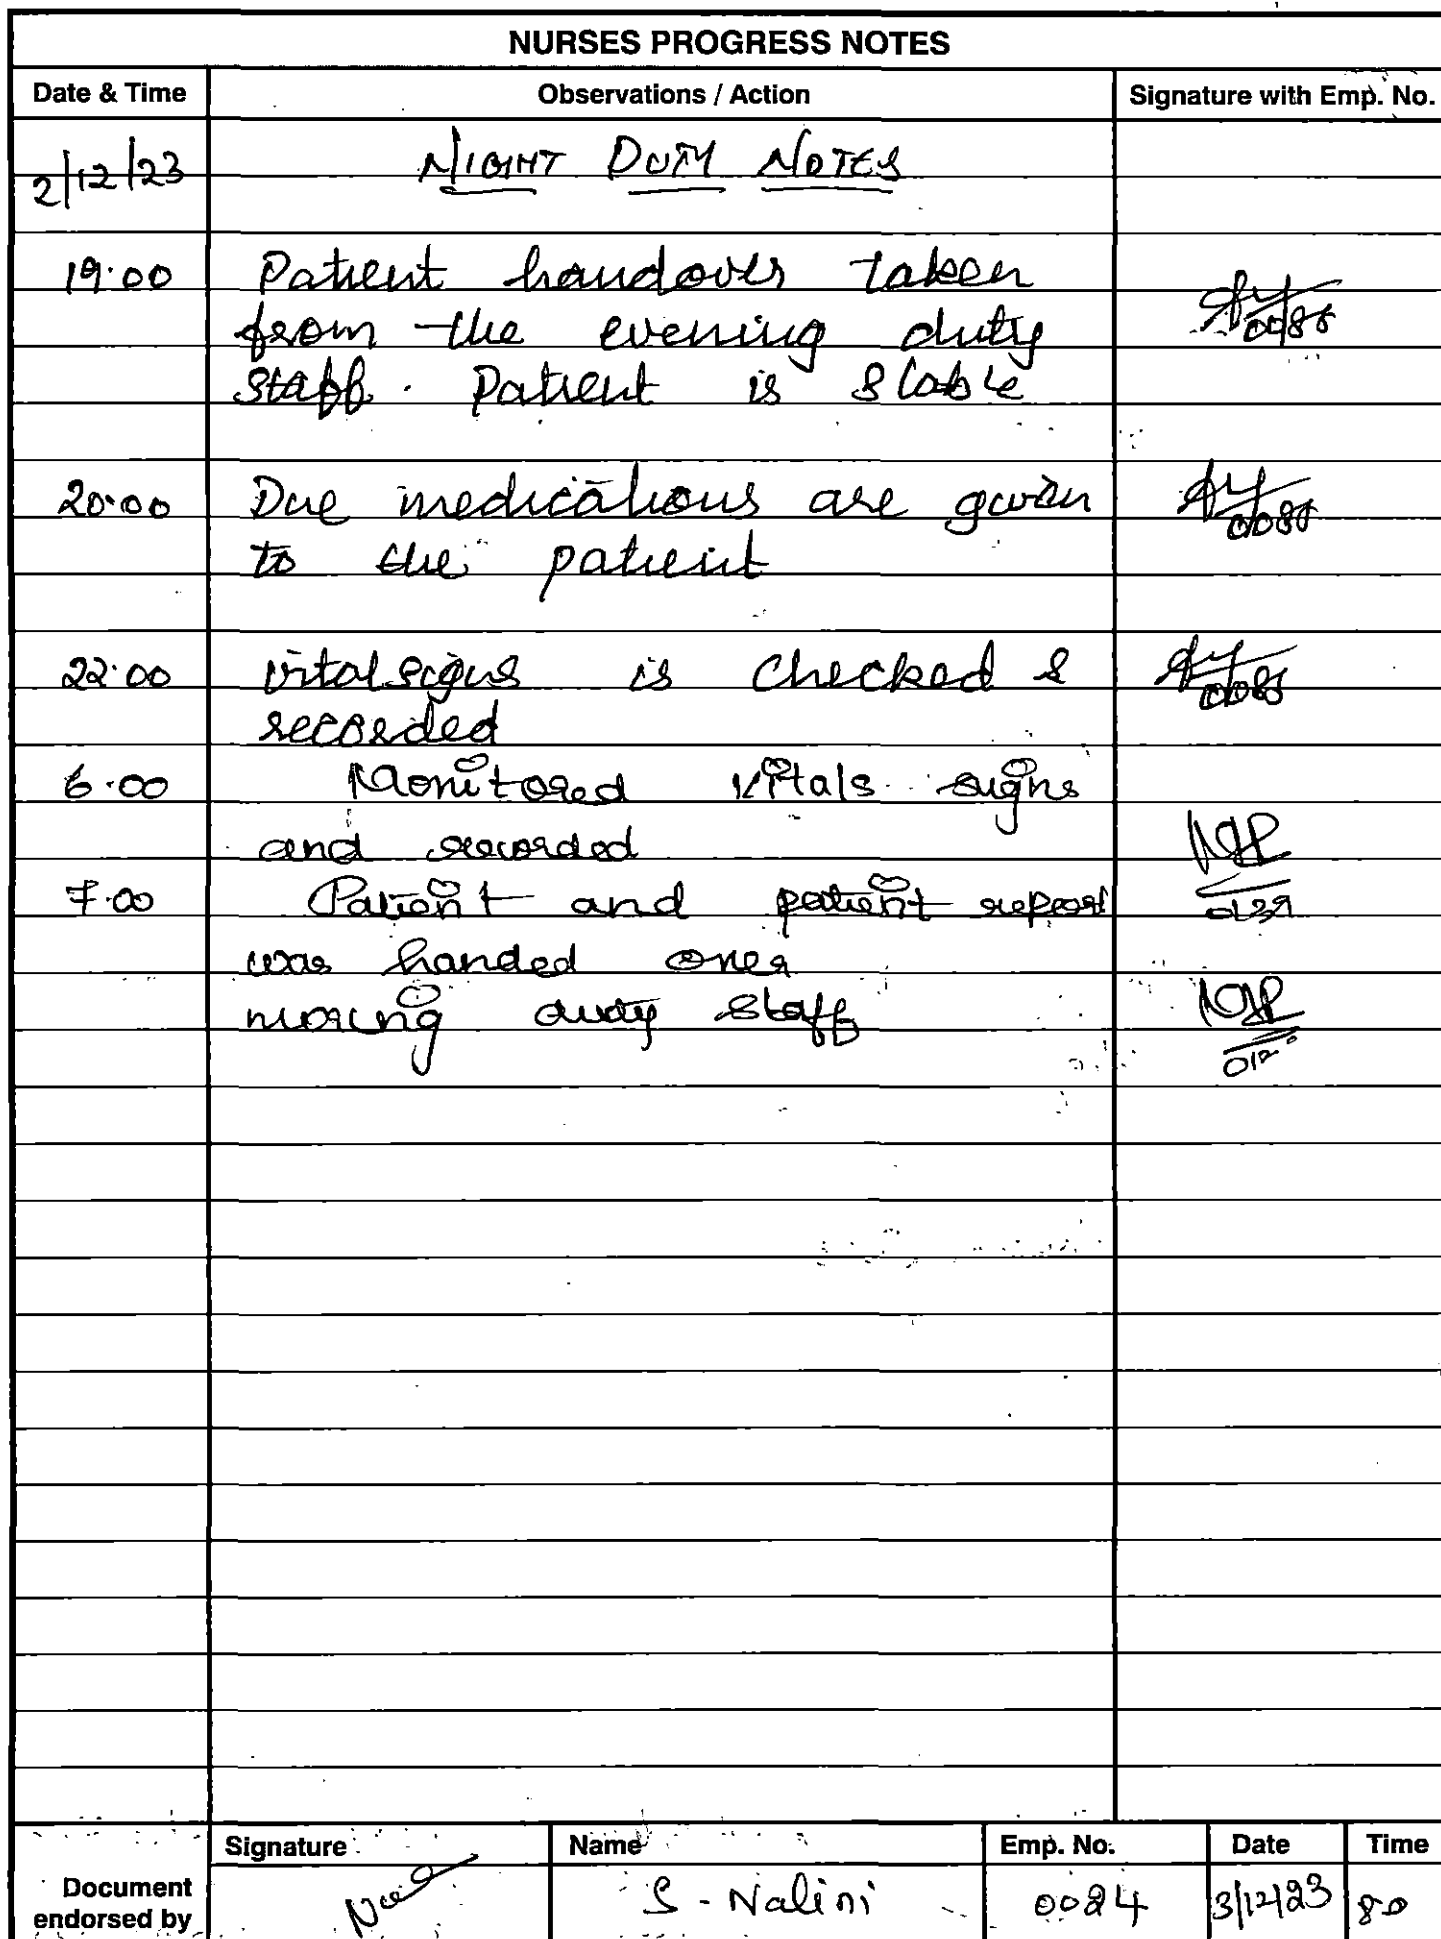 NURSES PROGRESS NOTES
Date & Time Observations / Action Signature with Emp. No.
2/12/23 NIGHT DUTY NOTES
19.00 Patient handover taken
from the evening duty
staff. Patient is stable
20.00 Due medications are given 0086
to the patient
22.00 vital signs is checked &
recorded
6.00 Monitored vitals signs
and recorded
7.00 Patient and patient report
was handed over
morning duty staff
Signature Name Emp. No. Date Time
Document S - Nalini 0024 3/12/23
endorsed by